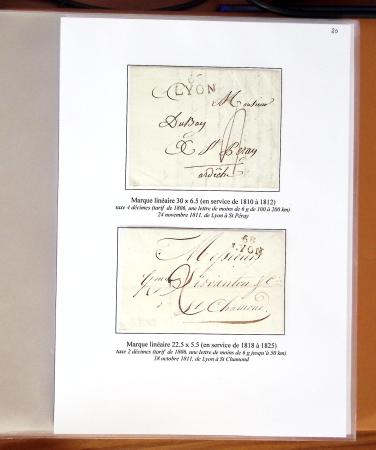 20
LYON
Monsieur
DuBay
St Peray
ardêche
Marque linéaire 30 x 6.5 (en service de 1810 à 1812)
taxe 4 décimes (tarif de 1806, une lettre de moins de 6 g de 100 à 200 km)
24 novembre 1811, de Lyon à St Péray
68
LYON
Messieurs
St Chamond
Marque linéaire 22.5 x 5.5 (en service de 1818 à 1825)
taxe 2 décimes (tarif de 1806, une lettre de moins de 6 g jusqu'à 50 km)
18 octobre 1811, de Lyon à St Chamond